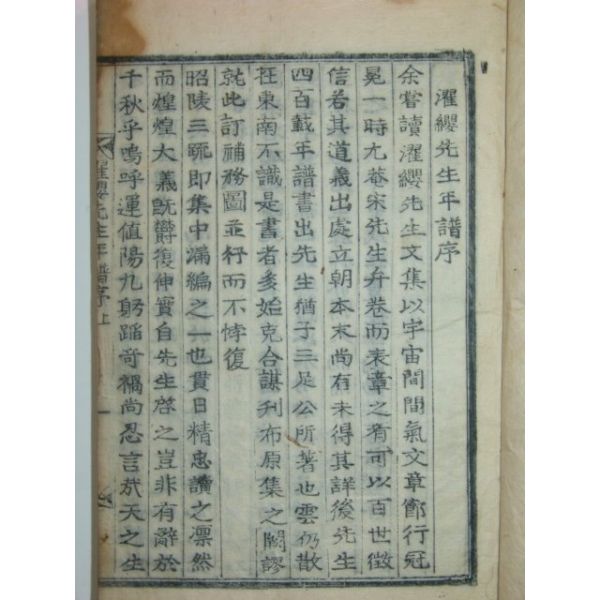 濯纓先生年譜序
余嘗讀濯纓先生文集以宇宙間間氣文章節行冠
冕一時尤菴宋先生弁卷而表章之有可以百世徵
信若其道義出處立朝本末尚有未得其詳後先生
四百載年譜書出先生猶子三足公所著也雲仍散
在東南不識是書者多始克合謀刊布原集之闕謬
就此訂補務圖並行而不悖復
昭陵三疏即集中漏編之一也貫日精忠讀之凛然
而煌煌大義旣欝復伸實自先生啓之豈非有辭於
千秋乎嗚呼運値陽九躬蹈奇禍尚忍言哉天之生
濯纓先生年譜序上